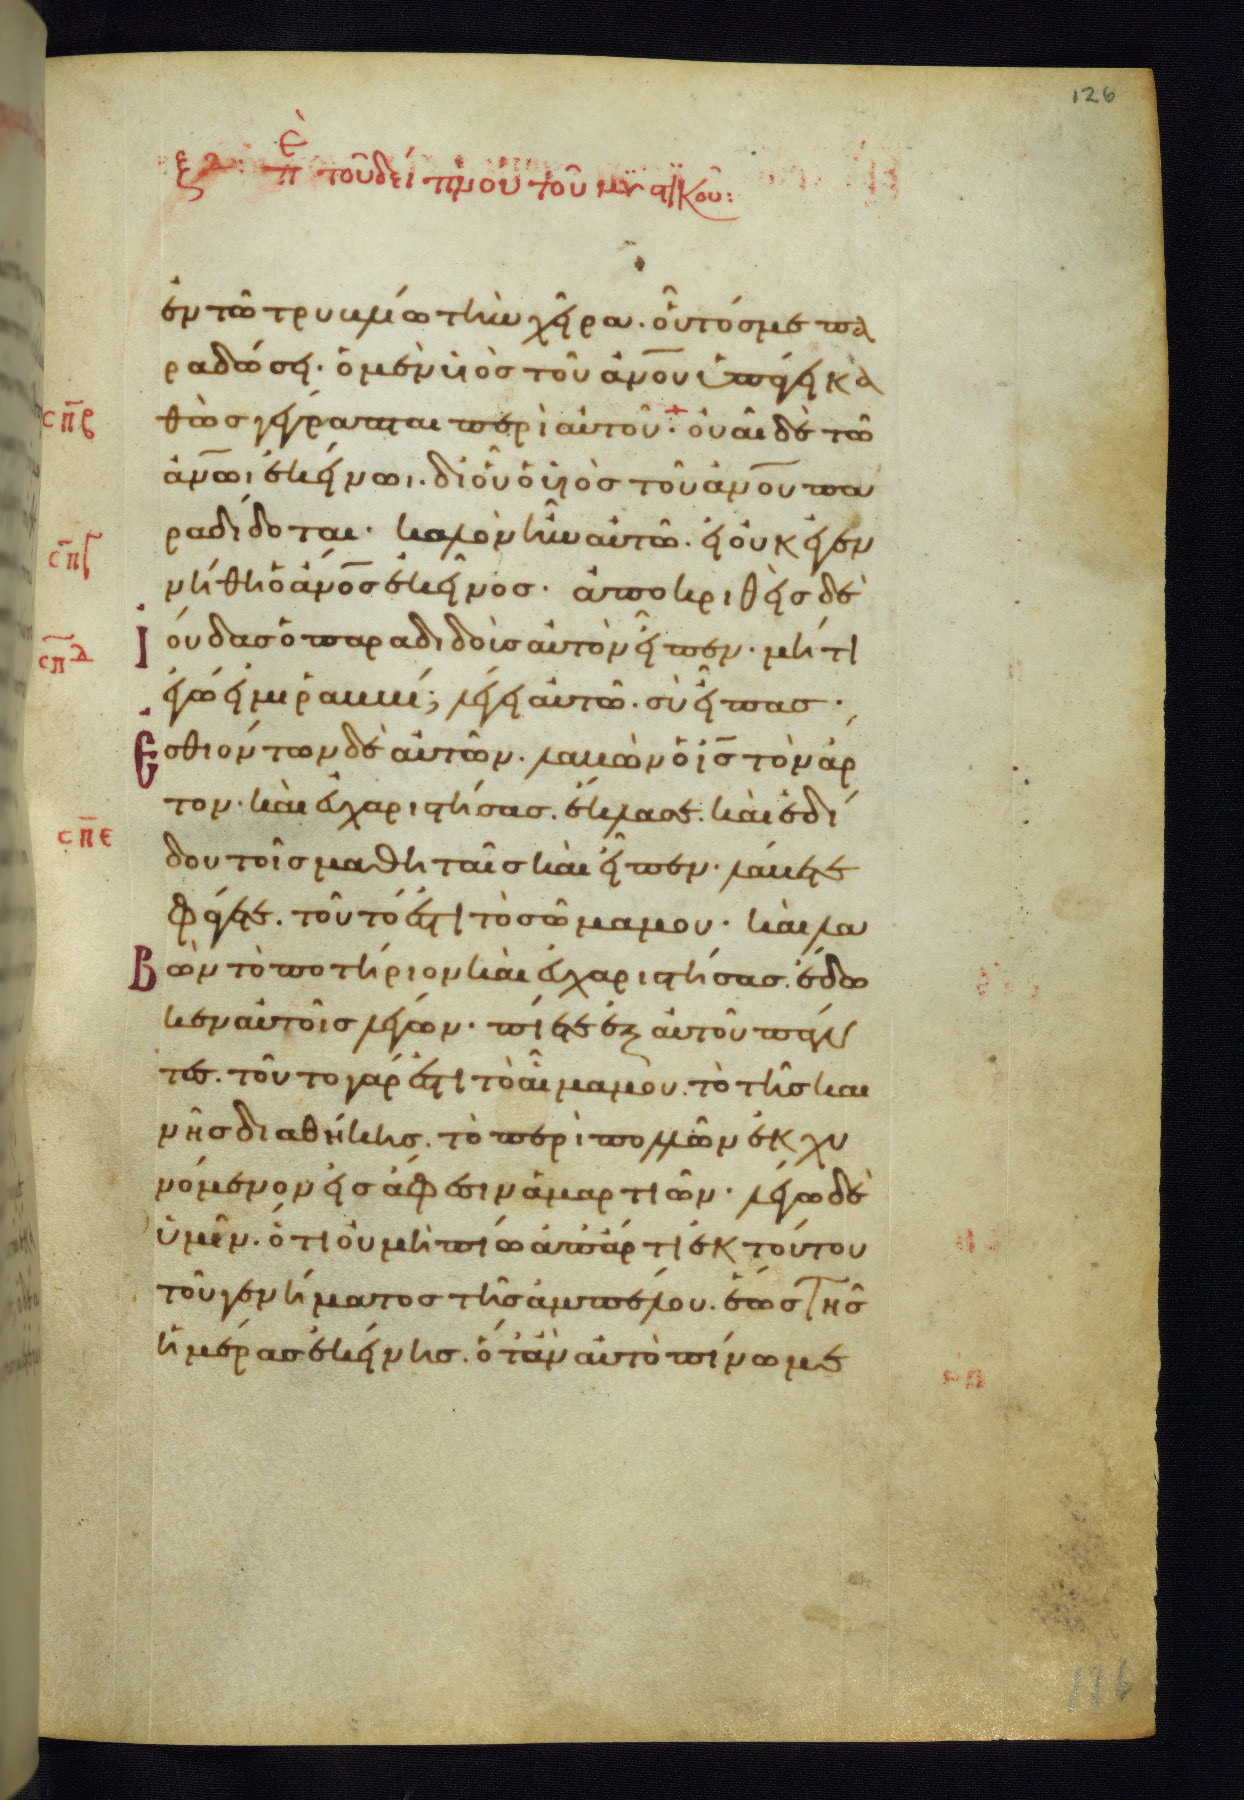 126
ξδ Περὶ τοῦ δείπνου τοῦ μυστικοῦ:
ἐν τῶ τρυβλίω τὴν χεῖρα. οὗτός με πα
ραδώσει. ὁ μὲν υἱὸς τοῦ ἀνου ὑπάγει κα
σπβ
θὼς γέγραπται περὶ αὐτοῦ. οὐαὶ δὲ τῶ
ἀνωι ἐκείνωι. δι' οὗ ὁ υἱὸς τοῦ ἀνου πα
σπγ
ραδίδοται. καλὸν ἦν αὐτῶ. εἰ οὐκ ἐγεν
νήθη ὁ ἀνος ἐκεῖνος. ἀποκριθεὶς δὲ
σπδ
Ἰούδας ὁ παραδιδοὺς αὐτὸν εἶπεν. μήτι
ἐγώ εἰμι ῥαββί; λέγει αὐτῶ. σὺ εἶπας.
Ἐσθιόντων δὲ αὐτῶν. λαβὼν ὁ ις τὸν ἄρ
σπε
τον. καὶ εὐχαριστήσας. ἔκλασε. καὶ ἐδί
δου τοῖς μαθηταῖς καὶ εἶπεν. λάβετε
φάγετε. τοῦτό ἐστι τὸ σῶμα μου. καὶ λα
Βὼν τὸ ποτήριον καὶ εὐχαριστήσας. ἔδω
κεν αὐτοῖς λέγων. πίετε ἐξ αὐτοῦ πάν
τες. τοῦτο γάρ ἐστι τὸ αἷμα μου. τὸ τῆς και
νῆς διαθήκης. τὸ περὶ πολλῶν ἐκχυ
νόμενον εἰς ἄφεσιν ἁμαρτιῶν. λέγω δὲ
ὑμῖν. ὅτι οὐ μὴ πίω ἀπάρτι ἐκ τούτου
τοῦ γενήματος τῆς ἀμπέλου. ἕως τῆς
ἡμέρας ἐκείνης. ὅταν αὐτὸ πίνω με
126